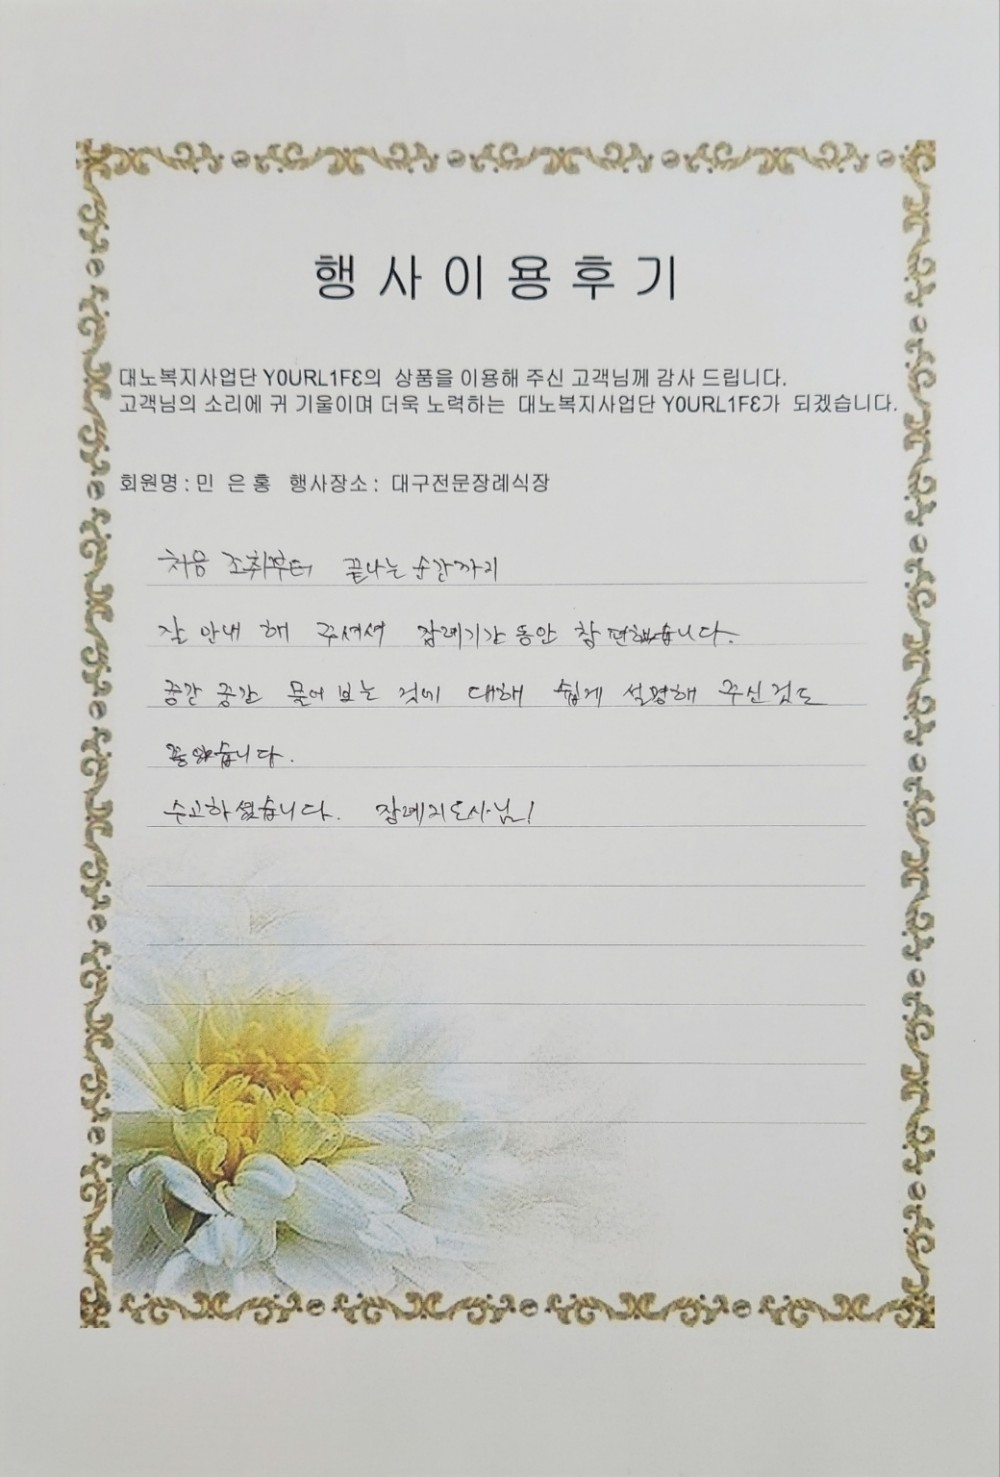 행사이용후기
대노복지사업단 Y0URL1FƐ의 상품을 이용해 주신 고객님께 감사 드립니다.
고객님의 소리에 귀 기울이며 더욱 노력하는 대노복지사업단 Y0URL1FƐ가 되겠습니다.
회원명 : 민 은 홍 행사장소 : 대구전문장례식장
처음 조취부터 끝나는 순간까지
잘 안내 해 주셔서 장례기간 동안 참 편했습니다.
중간 중간 물어 보는 것에 대해 쉽게 설명해 주신것도
좋았습니다.
수고하셨습니다. 장례지도사님!